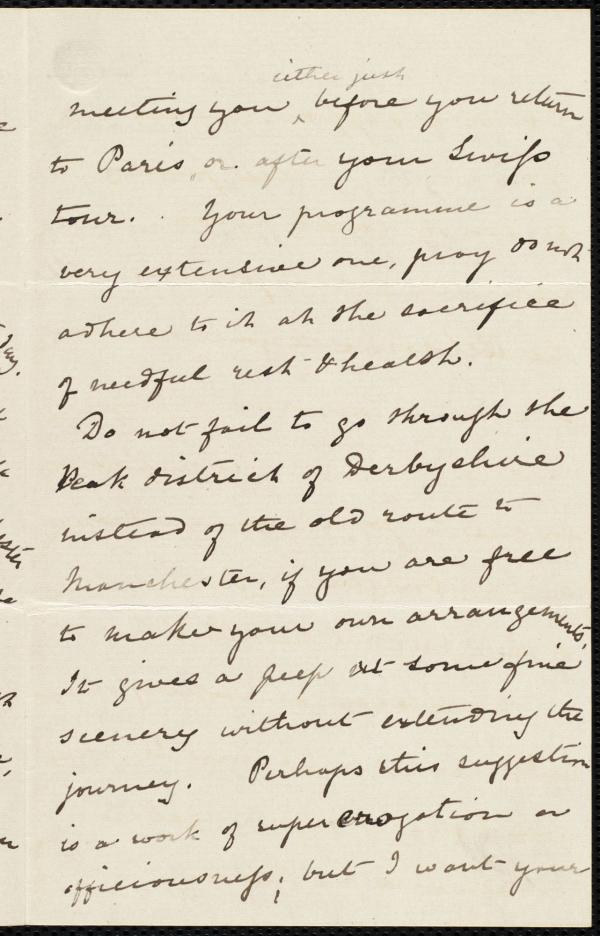 either just
meeting you ‸ before you return
to Paris, or after your Swiss
tour. Your programme is a
very extensive one, pray do not
adhere to it at the sacrifice
of needful rest & health.
Do not fail to go through the
Peak district of Derbyshire
instead of the old route to
Manchester, if you are free
to make your own arrangements.
It gives a peep at some fine
scenery without extending the
journey. Perhaps this suggestion
is a work of supererogation or
officiousness; but I want your